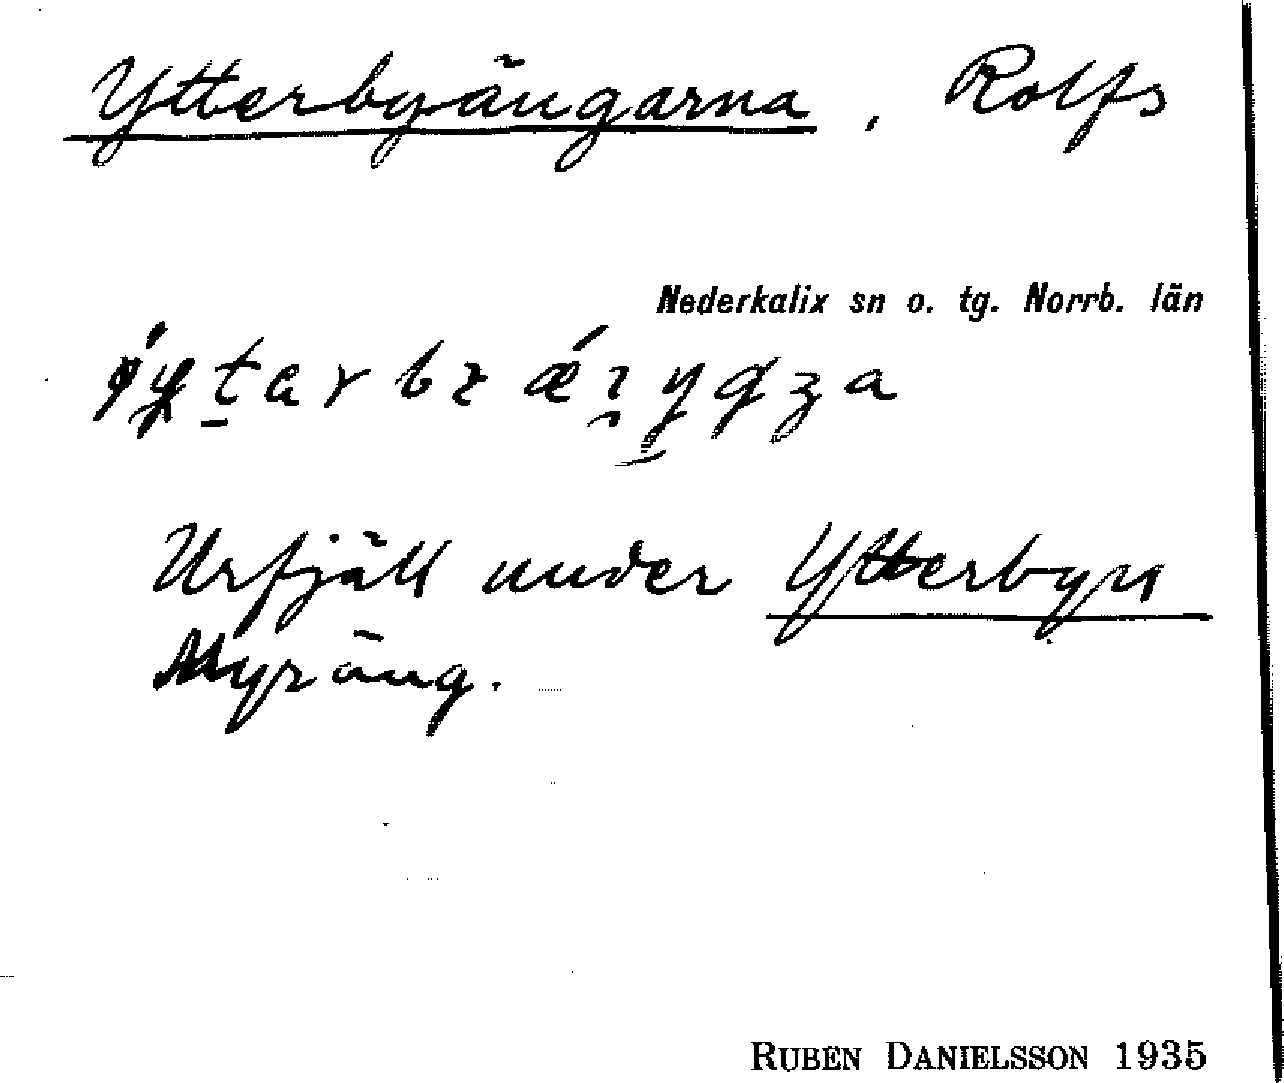 Ytterbyängarna, Rolfs
Nederkalix sn o. tg. Norrb. län
Urfjäll under Ytterbyn
Myräng.
RUBEN DANIELSSON 1935